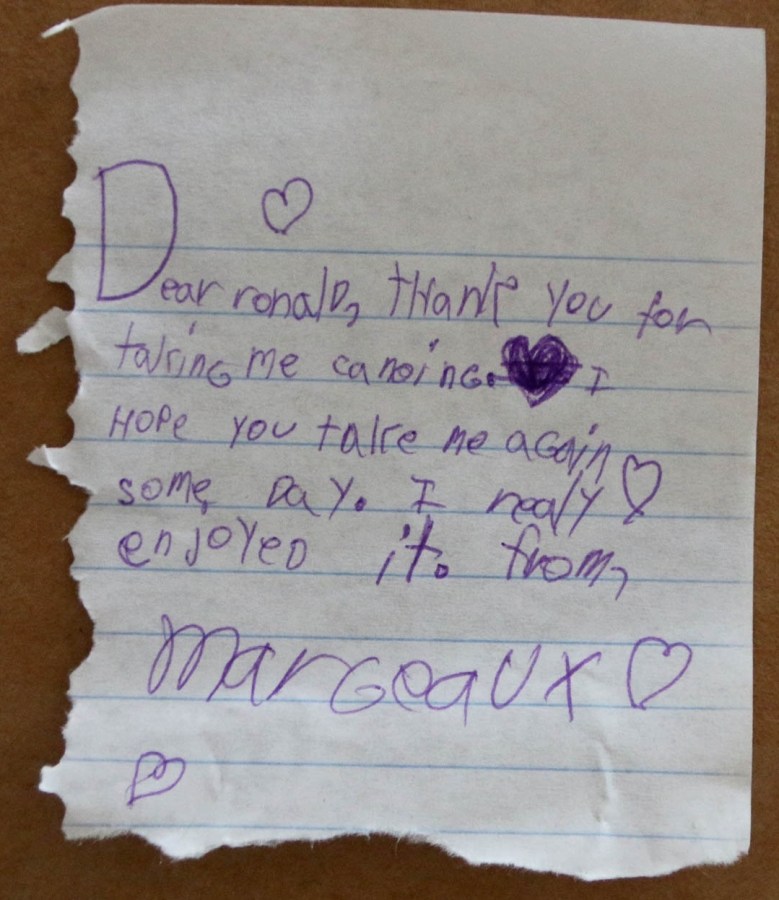 Dear ronalD, tHank you for
taking me canoing. I
HOPE you take me aGain
some DaY. I realy
enJoYeD it. from,
MarGeaUx